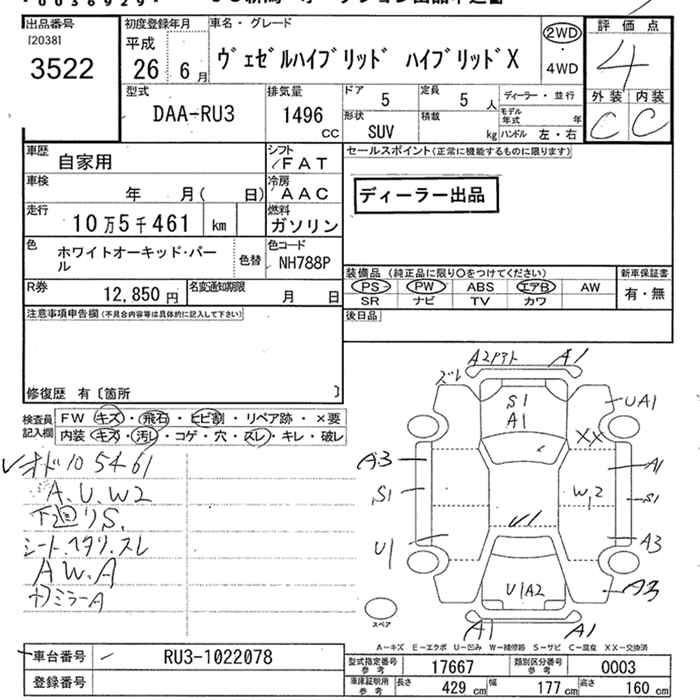 出品番号
[2038]
3522
初度登録年月
平成
26 6 月
車名・グレード
ヴェゼルハイブリッド ハイブリッドX
2WD
・
4WD
評 価 点
4
外装 内装
C C
型式
DAA-RU3
排気量
1496
CC
ドア
5
定員
5 人
形状
SUV
積載
kg
ディーラー・並行
モデル年式
年
ハンドル 左・右
車歴
自家用
シフト
FAT
車検
年 月( 日)
冷房
AAC
走行
10万5千461 km
燃料
ガソリン
色
ホワイトオーキッド・パール
色替
色コード
NH788P
R券
12,850 円
名変通知期限
月 日
セールスポイント(正常に機能するものに限ります)
ディーラー出品
装備品 (純正品に限り○をつけてください)
PS PW ABS エアB AW
SR ナビ TV カワ
新車保証書
有・無
後日品
注意事項申告欄(不具合内容等は具体的に記入して下さい)
修復歴 有〔箇所 〕
検査員
記入欄
FW キズ・飛石・ヒビ割・リペア跡・×要
内装 キズ・汚レ・コゲ・穴・スレ・キレ・破レ
オド105461
A.U.W2
下回りS.
シート.ヘタリ.スレ
AW.A
ミラーA
ズレ
A2
A1
S1
A1
UA1
XX
A3
A1
S1
W2
S1
U1
U1
A3
U1A2
A3
A1
A1
スペア
A-キズ E-エクボ U-凹み W-補修跡 S-サビ C-腐食 XX-交換済
車台番号
RU3-1022078
登録番号
型式指定番号
参考
17667
類別区分番号
参考
0003
車庫証明用
参考
長さ
429 cm
幅
177 cm
高さ
160 cm